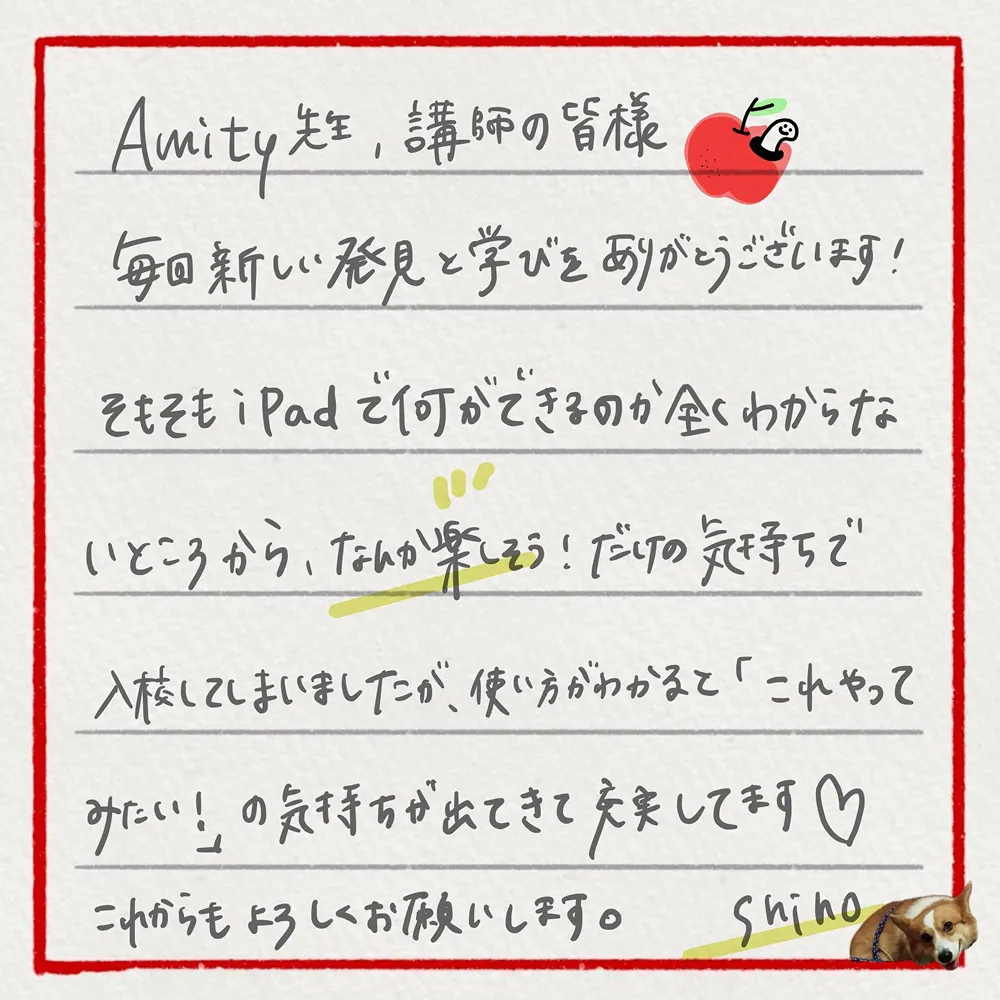 Amity先生,講師の皆様
毎回新しい発見と学びをありがとうございます!
そもそもiPadで何ができるのか全くわからな
いところから、なんか楽しそう!だけの気持ちで
入校してしまいましたが、使い方がわかると「これやって
みたい!」の気持ちが出てきて充実してます♡
これからもよろしくお願いします。 shiho